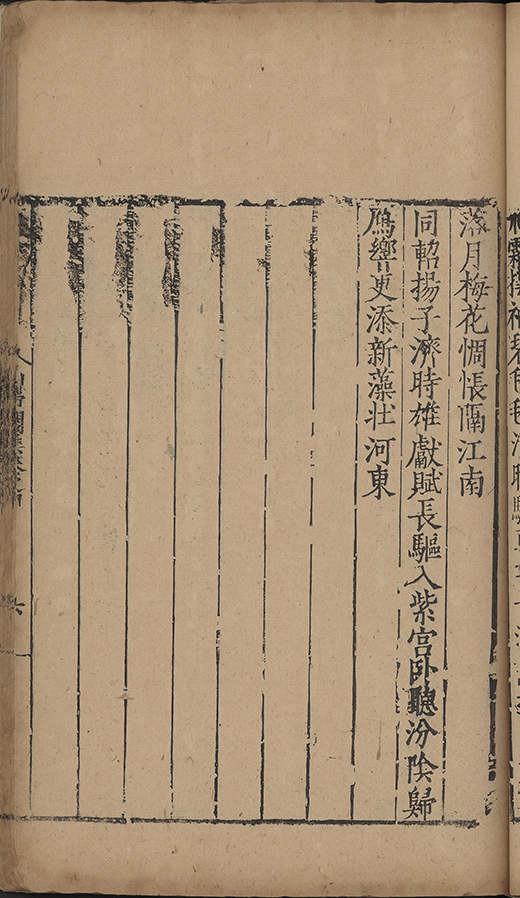 落月梅花惆悵隔江南
同軺揚子濟時雄獻賦長驅入紫宫卧聽汾陰歸
鴈響更添新藻壯河東
六